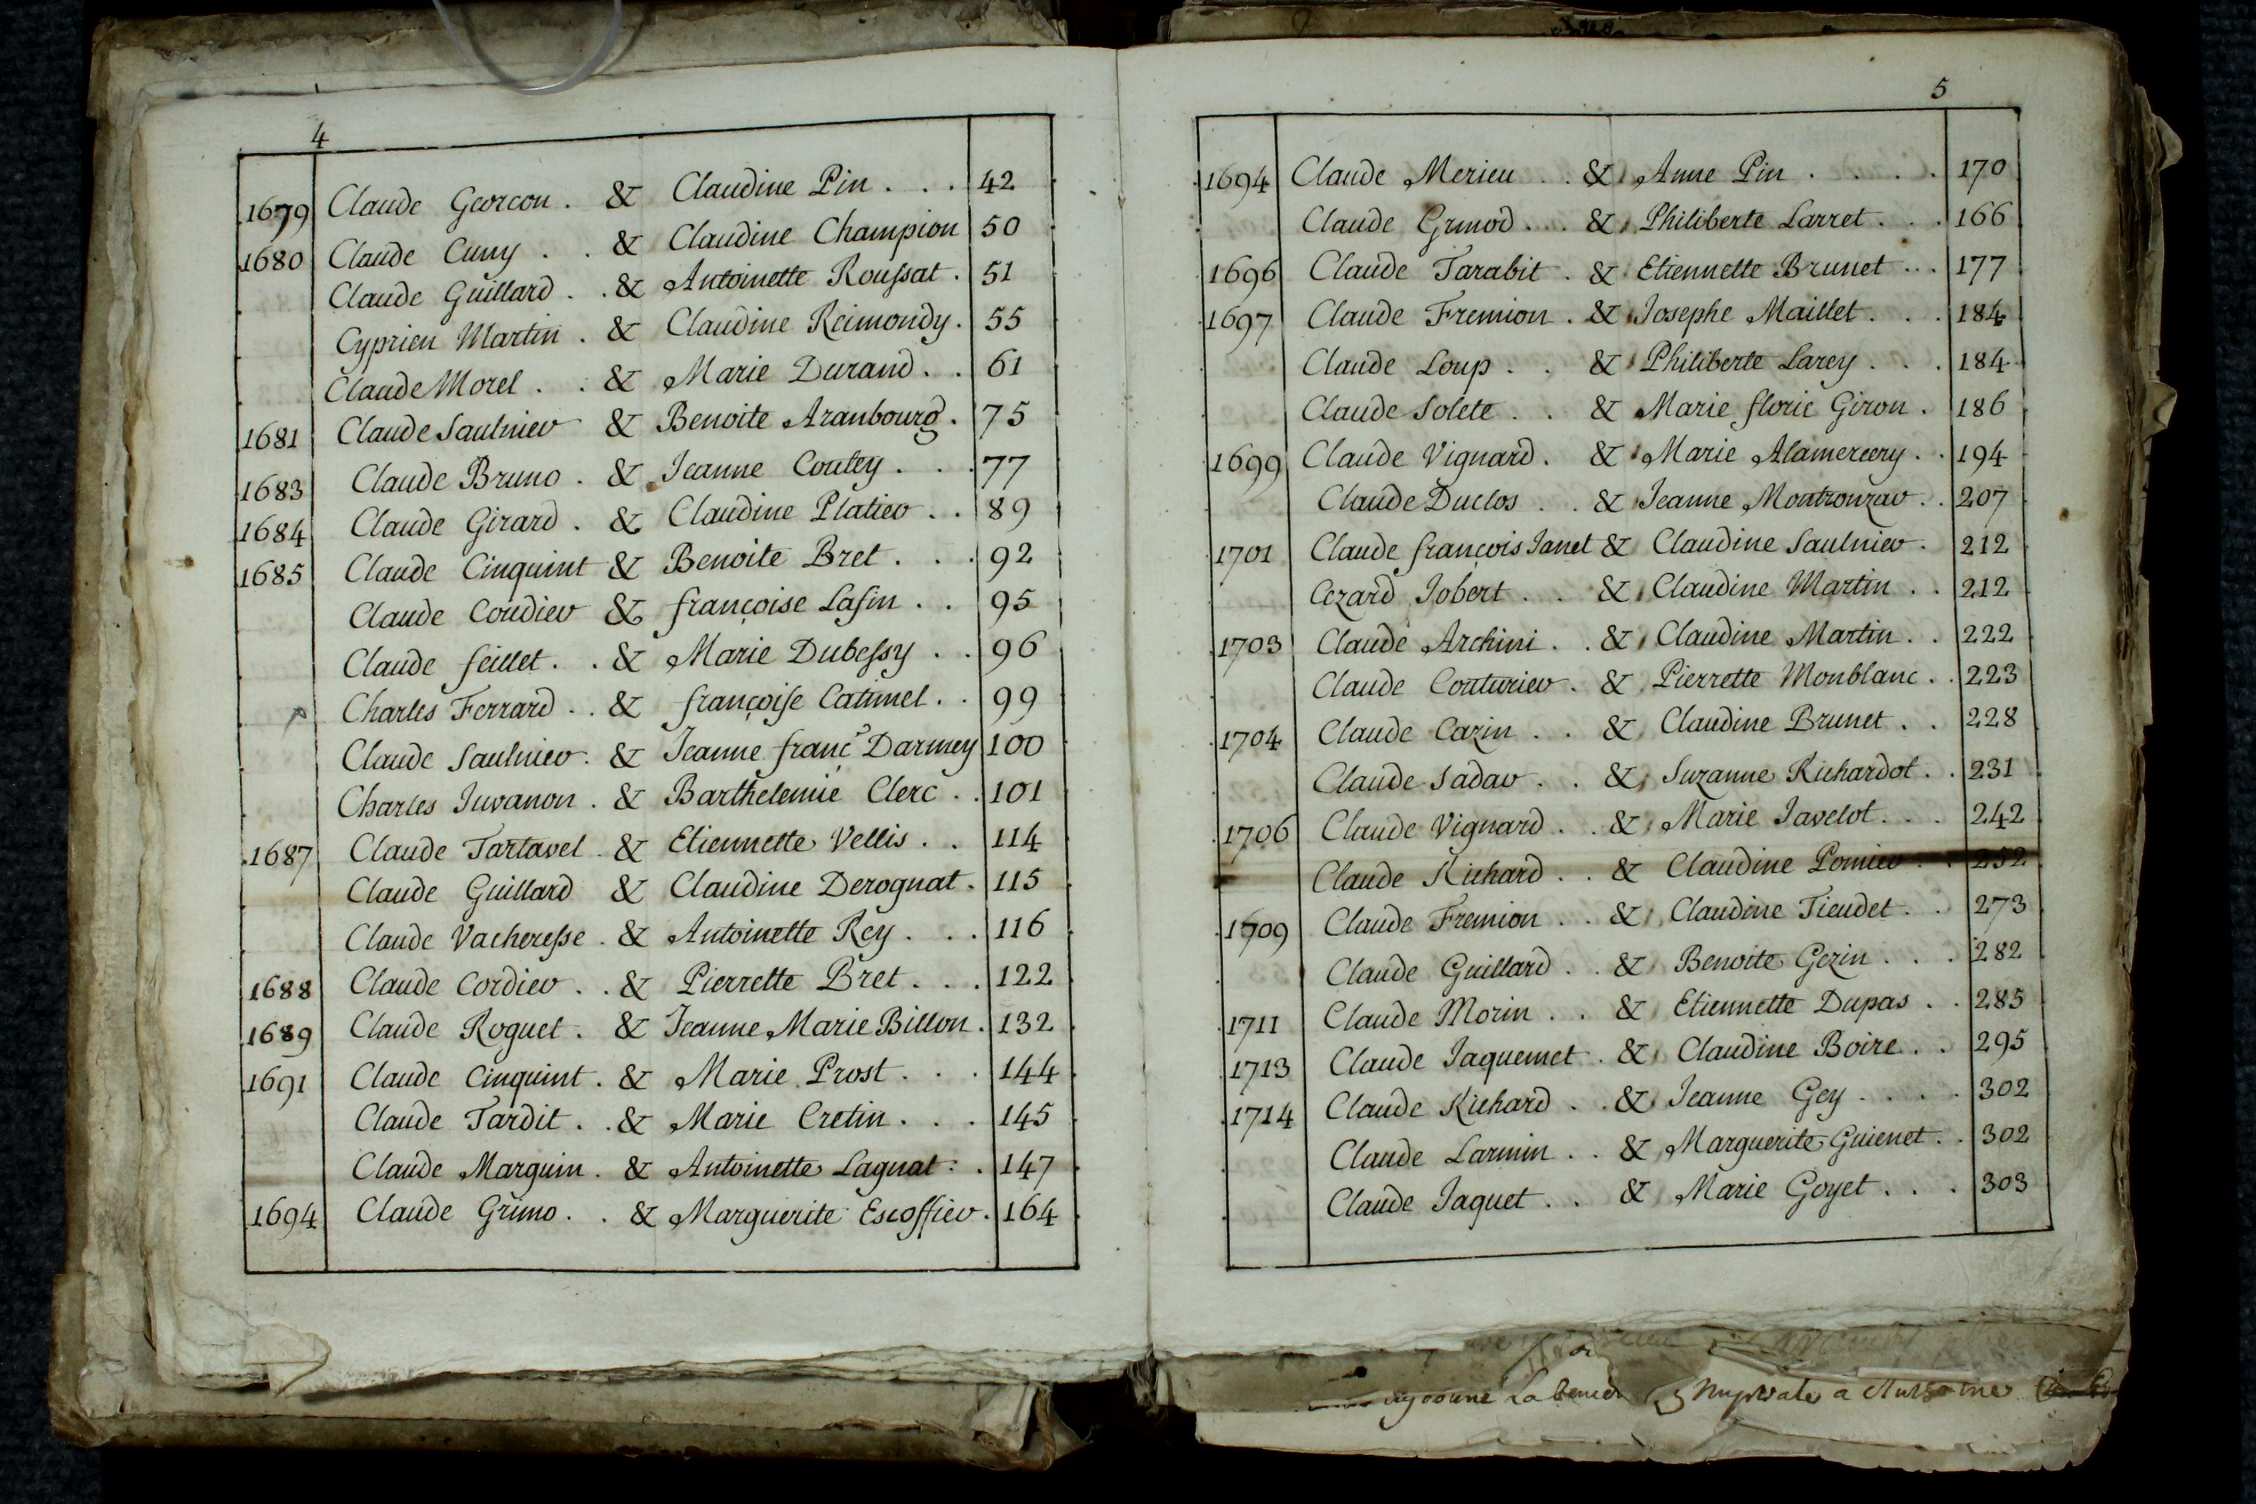 4
1679 Claude Georcon . & Claudine Pin . . . 42
1680 Claude Cuny . . & Claudine Champion 50
Claude Guillard . . & Antoinette Roussat . 51
Cyprien Martin . & Claudine Reimondy . 55
Claude Morel . . & Marie Durand . . 61
1681 Claude Saulnier & Benoite Aranbourg . 75
1683 Claude Bruno . & Jeanne Coutey . . . 77
1684 Claude Girard . & Claudine Platier . . 89
1685 Claude Cinquint & Benoite Bret . . . 92
Claude Cordier & françoise Lasin . . 95
Claude feillet . . & Marie Dubessy . . 96
Charles Ferrard . . & françoise Catimel . . 99
Claude Saulnier . & Jeanne franc.^e Darmey 100
Charles Juvanon . & Barthelemie Clerc . . 101
1687 Claude Tartavel . & Etiennette Vellis . . 114
Claude Guillard & Claudine Derognat . 115
Claude Vacheresse . & Antoinette Rey . . . 116
1688 Claude Cordier . . & Pierrette Bret . . . 122
1689 Claude Roguet . & Jeanne Marie Billon . 132
1691 Claude Cinquint . & Marie Prost . . . 144
Claude Tardit . . & Marie Cretin . . . 145
Claude Marguin . & Antoinette Lagnat . . 147
1694 Claude Grimo . . & Marguerite Escoffier . 164
5
1694 Claude Merieu . . & Anne Pin . . . . 170
Claude Grimod . . & Philiberte Larret . . . 166
1696 Claude Tarabit . & Etiennette Brunet . . . 177
1697 Claude Fremion . & Josephe Maillet . . . 184
Claude Loup . . & Philiberte Larey . . . 184
Claude Solete . . & Marie florie Giron . 186
1699 Claude Vignard . & Marie Alamercery . . 194
Claude Duclos . . & Jeanne Montronzar . . 207
1701 Claude françois Janet & Claudine Saulnier . 212
Cezard Jobert . . & Claudine Martin . . 212
1703 Claude Archini . . & Claudine Martin . . 222
Claude Couturier . & Pierrette Monblanc . . 223
1704 Claude Cazin . . & Claudine Brunet . . 228
Claude Sadar . . & Suzanne Richardot . . 231
1706 Claude Vignard . . & Marie Javelot . . . 242
Claude Richard . . & Claudine Pomier . . 252
1709 Claude Fremion . . & Claudine Tieudet . . 273
Claude Guillard . . & Benoite Gezin . . . 282
1711 Claude Morin . . & Etiennette Dupas . . 285
1713 Claude Jaquemet . & Claudine Boire . . 295
1714 Claude Richard . . & Jeanne Gey . . . . 302
Claude Larmin . . & Marguerite Guienet . . 302
Claude Jaquet . . & Marie Goyet . . . 303
donné La